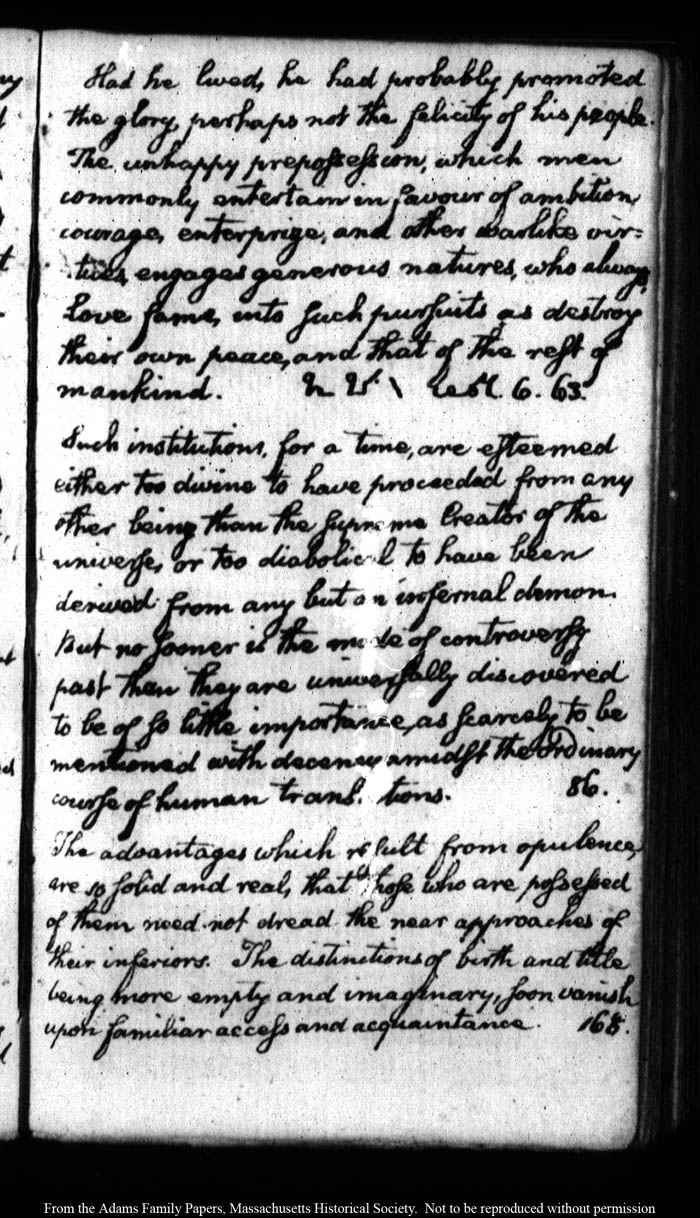 Had he lived, he had probably promoted
the glory, perhaps not the felicity of his people.
The unhappy prepossession, which men
commonly entertain in favour of ambition,
courage, enterprize, and other warlike vir=
tues, engages generous natures, who always
Love fame, into such pursuits as destroy
their own peace, and that of the rest of
mankind. 6. 63.
Such institutions, for a time, are esteemed
either too divine to have proceeded from any
other being than the supreme Creator of the
universe, or too diabolical to have been
derived from any but an infernal demon.
But no sooner is the mode of controversy
past than they are universally discovered
to be of so little importance, as scarcely to be
mentioned with decency amidst the ordinary
course of human transactions. 86.
The advantages which result from opulence,
are so solid and real, that those who are possessed
of them need not dread the near approaches of
their inferiors. The distinctions of birth and title
being more empty and imaginary, soon vanish
upon familiar access and acquaintance. 168.
From the Adams Family Papers, Massachusetts Historical Society. Not to be reproduced without permission